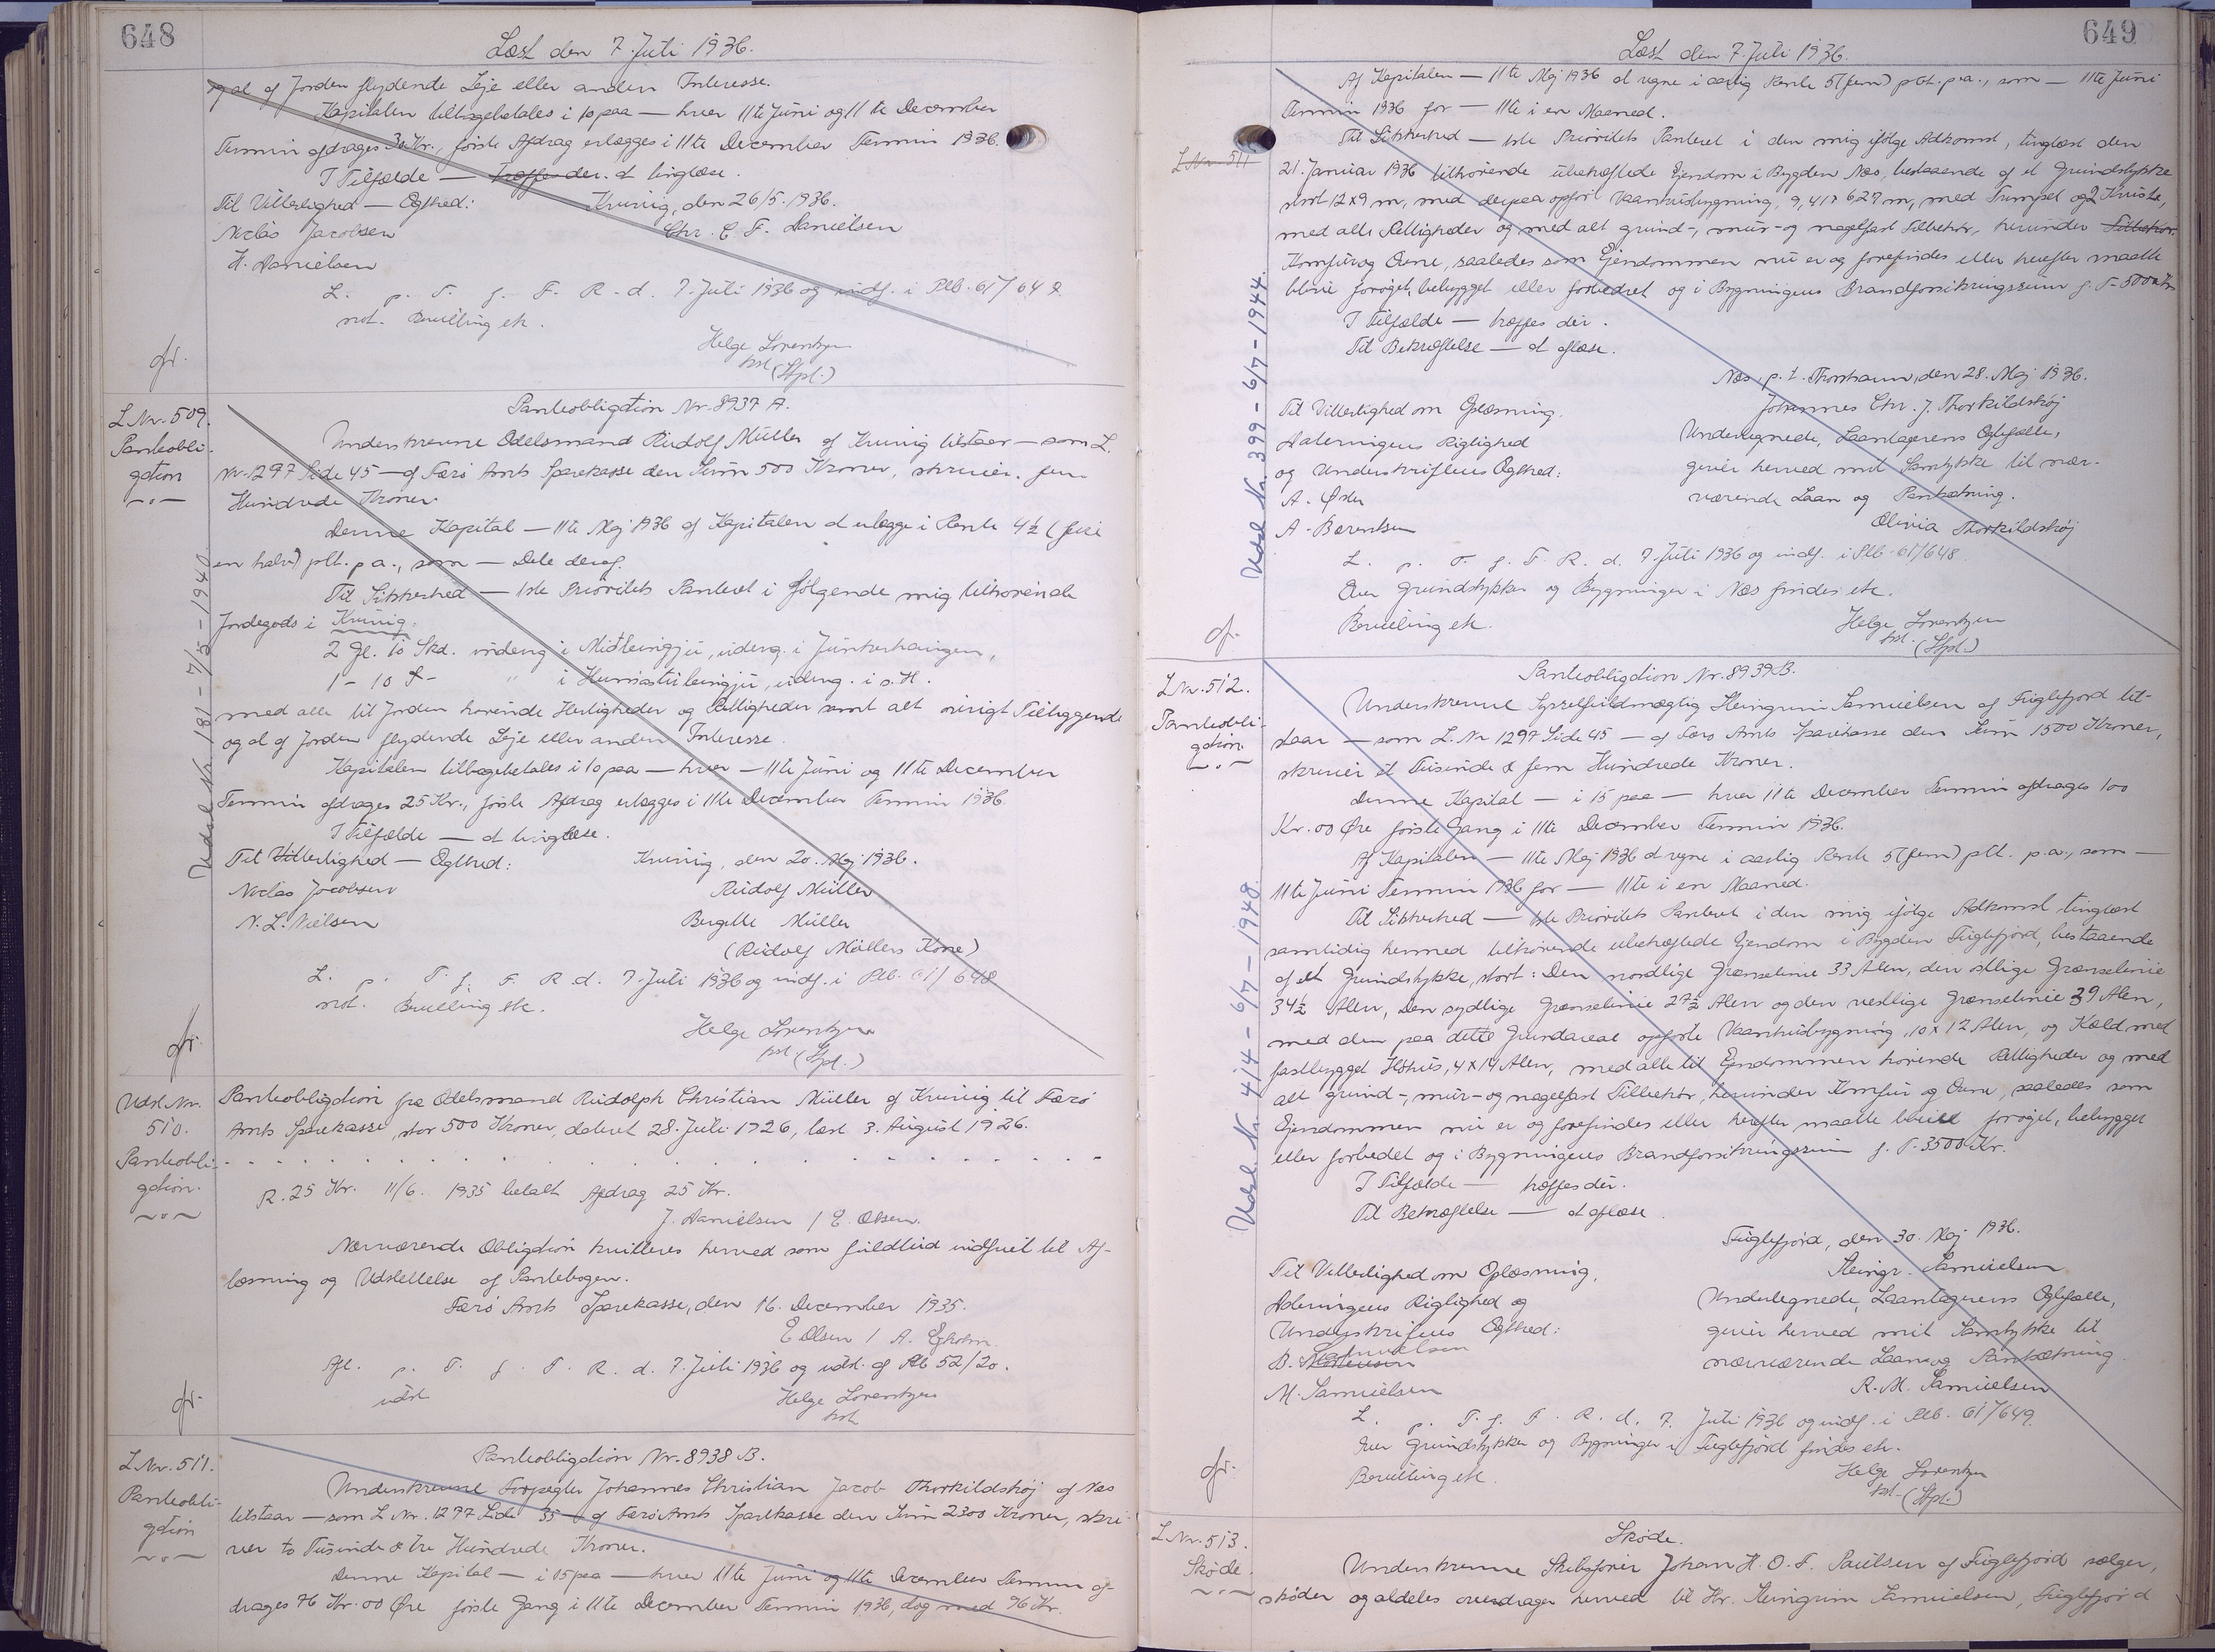 648
Læst den 7. Juli 1936.
og al af Jorden flydende Leje eller anden Interesse.
Kapitalen tilbagebetales i 10 paa — hver 11te Juni og 11te December
Termin afdrages 30 Kr., første Afdrag erlægges i 11te December Termin 1936.
I Tilfælde — træffes der. at tinglæse.
Til Vitterlighed — Ægthed:
Kunøy, den 26/5. 1936.
Niclas Jacobsen
Chr. C. F. Danielsen
H. Danielsen
L. p. T. f. F. R. d. 7. Juli 1936 og indf. i Plb. 61/648
not. Bevilling etc.
Helge Lorentzen
kst.
(Stpl.)
L Nr. 509.
Pantobli-
gation
Pantobligation Nr. 8937 A.
Underskrevne Odelsmand Rudolf Müller af Kunøy tilstaar — som L.
Nr. 1297 Side 45 — af Færø Amts Sparekasse den Sum 500 Kroner, skriver fem
Hundrede Kroner.
Denne Kapital — 11te Maj 1936 af Kapitalen at erlægge i Rente 4½ (fire
en halv) pCt. p a., som — Dele deraf.
Til Sikkerhed — 1ste Prioritets Panteret i følgende mig tilhørende
Jordegods i Kunøy:
2 Gl. 10 Skd. indeng i Midtleingju, udeng. i Junkerhaugen,
1 - 10 f - " i Humastuleingju, udeng. i s. H.
med alle til Jorden hørende Herligheder og Rettigheder samt alt øvrigt Tilliggende
og al af Jorden flydende Leje eller anden Interesse.
Kapitalen tilbagebetales i 10 paa — hver — 11te Juni og 11te December
Termin afdrages 25 Kr., første Afdrag erlægges i 11te December Termin 1936.
I Tilfælde — at tinglæse.
Til Vitterlighed — Ægthed:
Kunøy, den 20. Maj 1936.
Niclas Jacobsen
Rudolf Müller
N. L. Nielsen
Bergitte Müller
(Rudolf Müllers Kone)
L. p. T. f. F. R. d. 7. Juli 1936 og indf. i Plb. 61/648
not. Bevilling etc.
Helge Lorentzen
kst. (Stpl.)
Udsl. Nr. 181 - 7/5 - 1940.
Udsl. Nr.
510.
Pantobli-
gation.
Pantobligation fra Odelsmand Rudolph Christian Müller af Kunøy til Færø
Amts Sparekasse, stor 500 Kroner, dateret 28. Juli 1926, læst 3. August 1926.
R. 25 Kr. 11/6. 1935 betalt Afdrag 25 Kr.
J. Danielsen / E. Olsen.
Nærværende Obligation kvitteres herved som fuldtud indfriet til Af-
læsning og Udslettelse af Pantebogen.
Færø Amts Sparekasse, den 16. December 1935.
E Olsen / A. Egholm.
Afl. p. T. f. F. R. d. 7. Juli 1936 og udsl. af Plb 52/20.
udsl.
Helge Lorentzen
kst.
L Nr. 511.
Pantobli-
gation
Pantobligation Nr. 8938 B.
Underskrevne Forpagter Johannes Christian Jacob Thorkildshøj af Næs
tilstaar — som L. Nr. 1297 Side 35 — af Færø Amts Sparekasse den Sum 2300 Kroner, skri-
ver to Tusinde & tre Hundrede Kroner.
Denne Kapital — i 15 paa — hver 11te Juni og 11te December Termin af-
drages 76 Kr. 00 Øre første Gang i 11te December Termin 1936, dog med 76 Kr.
649
Læst den 7. Juli 1936.
Af Kapitalen — 11te Maj 1936 at regne i aarlig Rente 5 (fem) pCt. p.a., som — 11te Juni
Termin 1936 for — 11te i en Maaned.
L Nr. 511
Til Sikkerhed — 1ste Prioritets Panteret i den mig ifølge Adkomst, tinglæst den
21. Januar 1936 tilhørende ubehæftede Ejendom i Bygden Næs, bestaaende af et Grundstykke
stort 12 x 9 m, med derpaa opført Vaaningsbygning, 9,41 x 6,27 m, med Trumpet og 2 Kviste,
med alle Rettigheder og med alt grund-, mur- og nagelfast Tilbehør, herunder Tilbehør
Komfur og Ovne, saaledes som Ejendommen nu er og forefindes eller herefter maatte
blive forøget, bebygget eller forbedret og i Bygningens Brandforsikringssum f. T. 5000 Kr.
I Tilfælde — træffes der.
Til Bekræftelse — at aflæse.
Næs p. t. Thorshavn, den 28. Maj 1936.
Til Vitterlighed om Oplæsning,
Johannes Chr. J. Thorkildshøj
Dateringens Rigtighed
Undertegnede, Laantagerens Ægtefælle,
og Underskriftens Ægthed:
giver herved mit Samtykke til nær-
A. Øster
værende Laan og Pantsætning.
A. Berentsen
Olivia Thorkildshøj
L. p. T. f. F. R. d. 7. Juli 1936 og indf. i Plb. 61/648
Over Grundstykker og Bygninger i Næs findes etc.
Bevilling etc.
Helge Lorentzen
kst. (Stpl.)
Udsl. Nr. 399 - 6/7 - 1944.
L Nr. 512.
Pantobli-
gation
Pantobligation Nr. 8939 B.
Underskrevne Sysselfuldmægtig Heingrim Samuelsen af Fuglefjord til-
staar — som L. Nr 1297 Side 45 — af Færø Amts Sparekasse den Sum 1500 Kroner,
skriver et Tusinde & fem Hundrede Kroner.
Denne Kapital — i 15 paa — hver 11te December Termin afdrages 100
Kr. 00 Øre første Gang i 11te December Termin 1936.
Af Kapitalen — 11te Maj 1936 at regne i aarlig Rente 5 (fem) pCt. p.a., som —
11te Juni Termin 1936 for — 11te i en Maaned.
Til Sikkerhed — 1ste Prioritets Panteret i den mig ifølge Adkomst tinglæst
samtidig hermed tilhørende ubehæftede Ejendom i Bygden Fuglefjord, bestaaende
af et Grundstykke, stort: Den nordlige Grænselinie 33 Alen, den østlige Grænselinie
34½ Alen, Den sydlige Grænselinie 27½ Alen og den vestlige Grænselinie 39 Alen,
med den paa dette Grundareal opførte Vaaningsbygning, 10 x 12 Alen, og Kæld med
fastbygget Høhus, 4 x 14 Alen, med alle til Ejendommen hørende Rettigheder og med
alt grund-, mur- og nagelfast Tilbehør, herunder Komfur og Ovne, saaledes som
Ejendommen nu er og forefindes eller herefter maatte blive forøget, bebygget
eller forbedret og i Bygningens Brandforsikringssum f. T. 3500 Kr.
I Tilfælde — træffes der.
Til Bekræftelse — at aflæse.
Fuglefjord, den 30. Maj 1936.
Til Vitterlighed om Oplæsning,
Heingr. Samuelsen
Dateringens Rigtighed og
Undertegnede, Laantagerens Ægtefælle,
Underskriftens Ægthed:
giver herved mit Samtykke til
B. Samuelsen
nærværende Laan og Pantsætning.
M. Samuelsen
R. M. Samuelsen
L. p. T. f. F. R. d. 7. Juli 1936 og indf. i Plb. 61/649.
Over Grundstykker og Bygninger i Fuglefjord findes etc.
Bevilling etc.
Helge Lorentzen
kst. (Stpl.)
Udsl. Nr. 414 - 6/7 - 1948.
L Nr. 513.
Skøde.
Skøde.
Underskrevne Skibsfører Johan H. O. F. Poulsen af Fuglefjord sælger,
skøder og aldeles overdrager herved til Hr. Heingrim Samuelsen, Fuglefjord